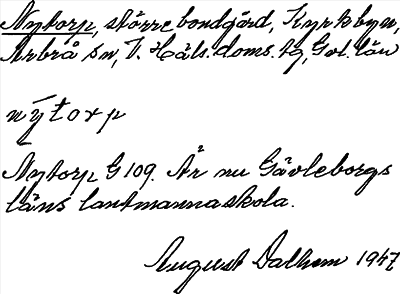 Nytorp, större bondgård, Kyrkbyn,
Arbrå sn, V. Häls. doms. tg, Gvl. län
nýtorp
Nytorp G 109. Är nu Gävleborgs
läns lantmannaskola.
August Dalhem 1947